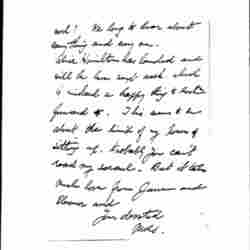 well! We long to hear about
everything and every one.
Alice Hamilton has landed and
will be here next week which
is indeed a happy thing to
forward to. This seems to be
about the limit of my hours of
sitting up. Probably you can't
read my scrawl. But it takes
much love from and
Eleanor and
Your devoted